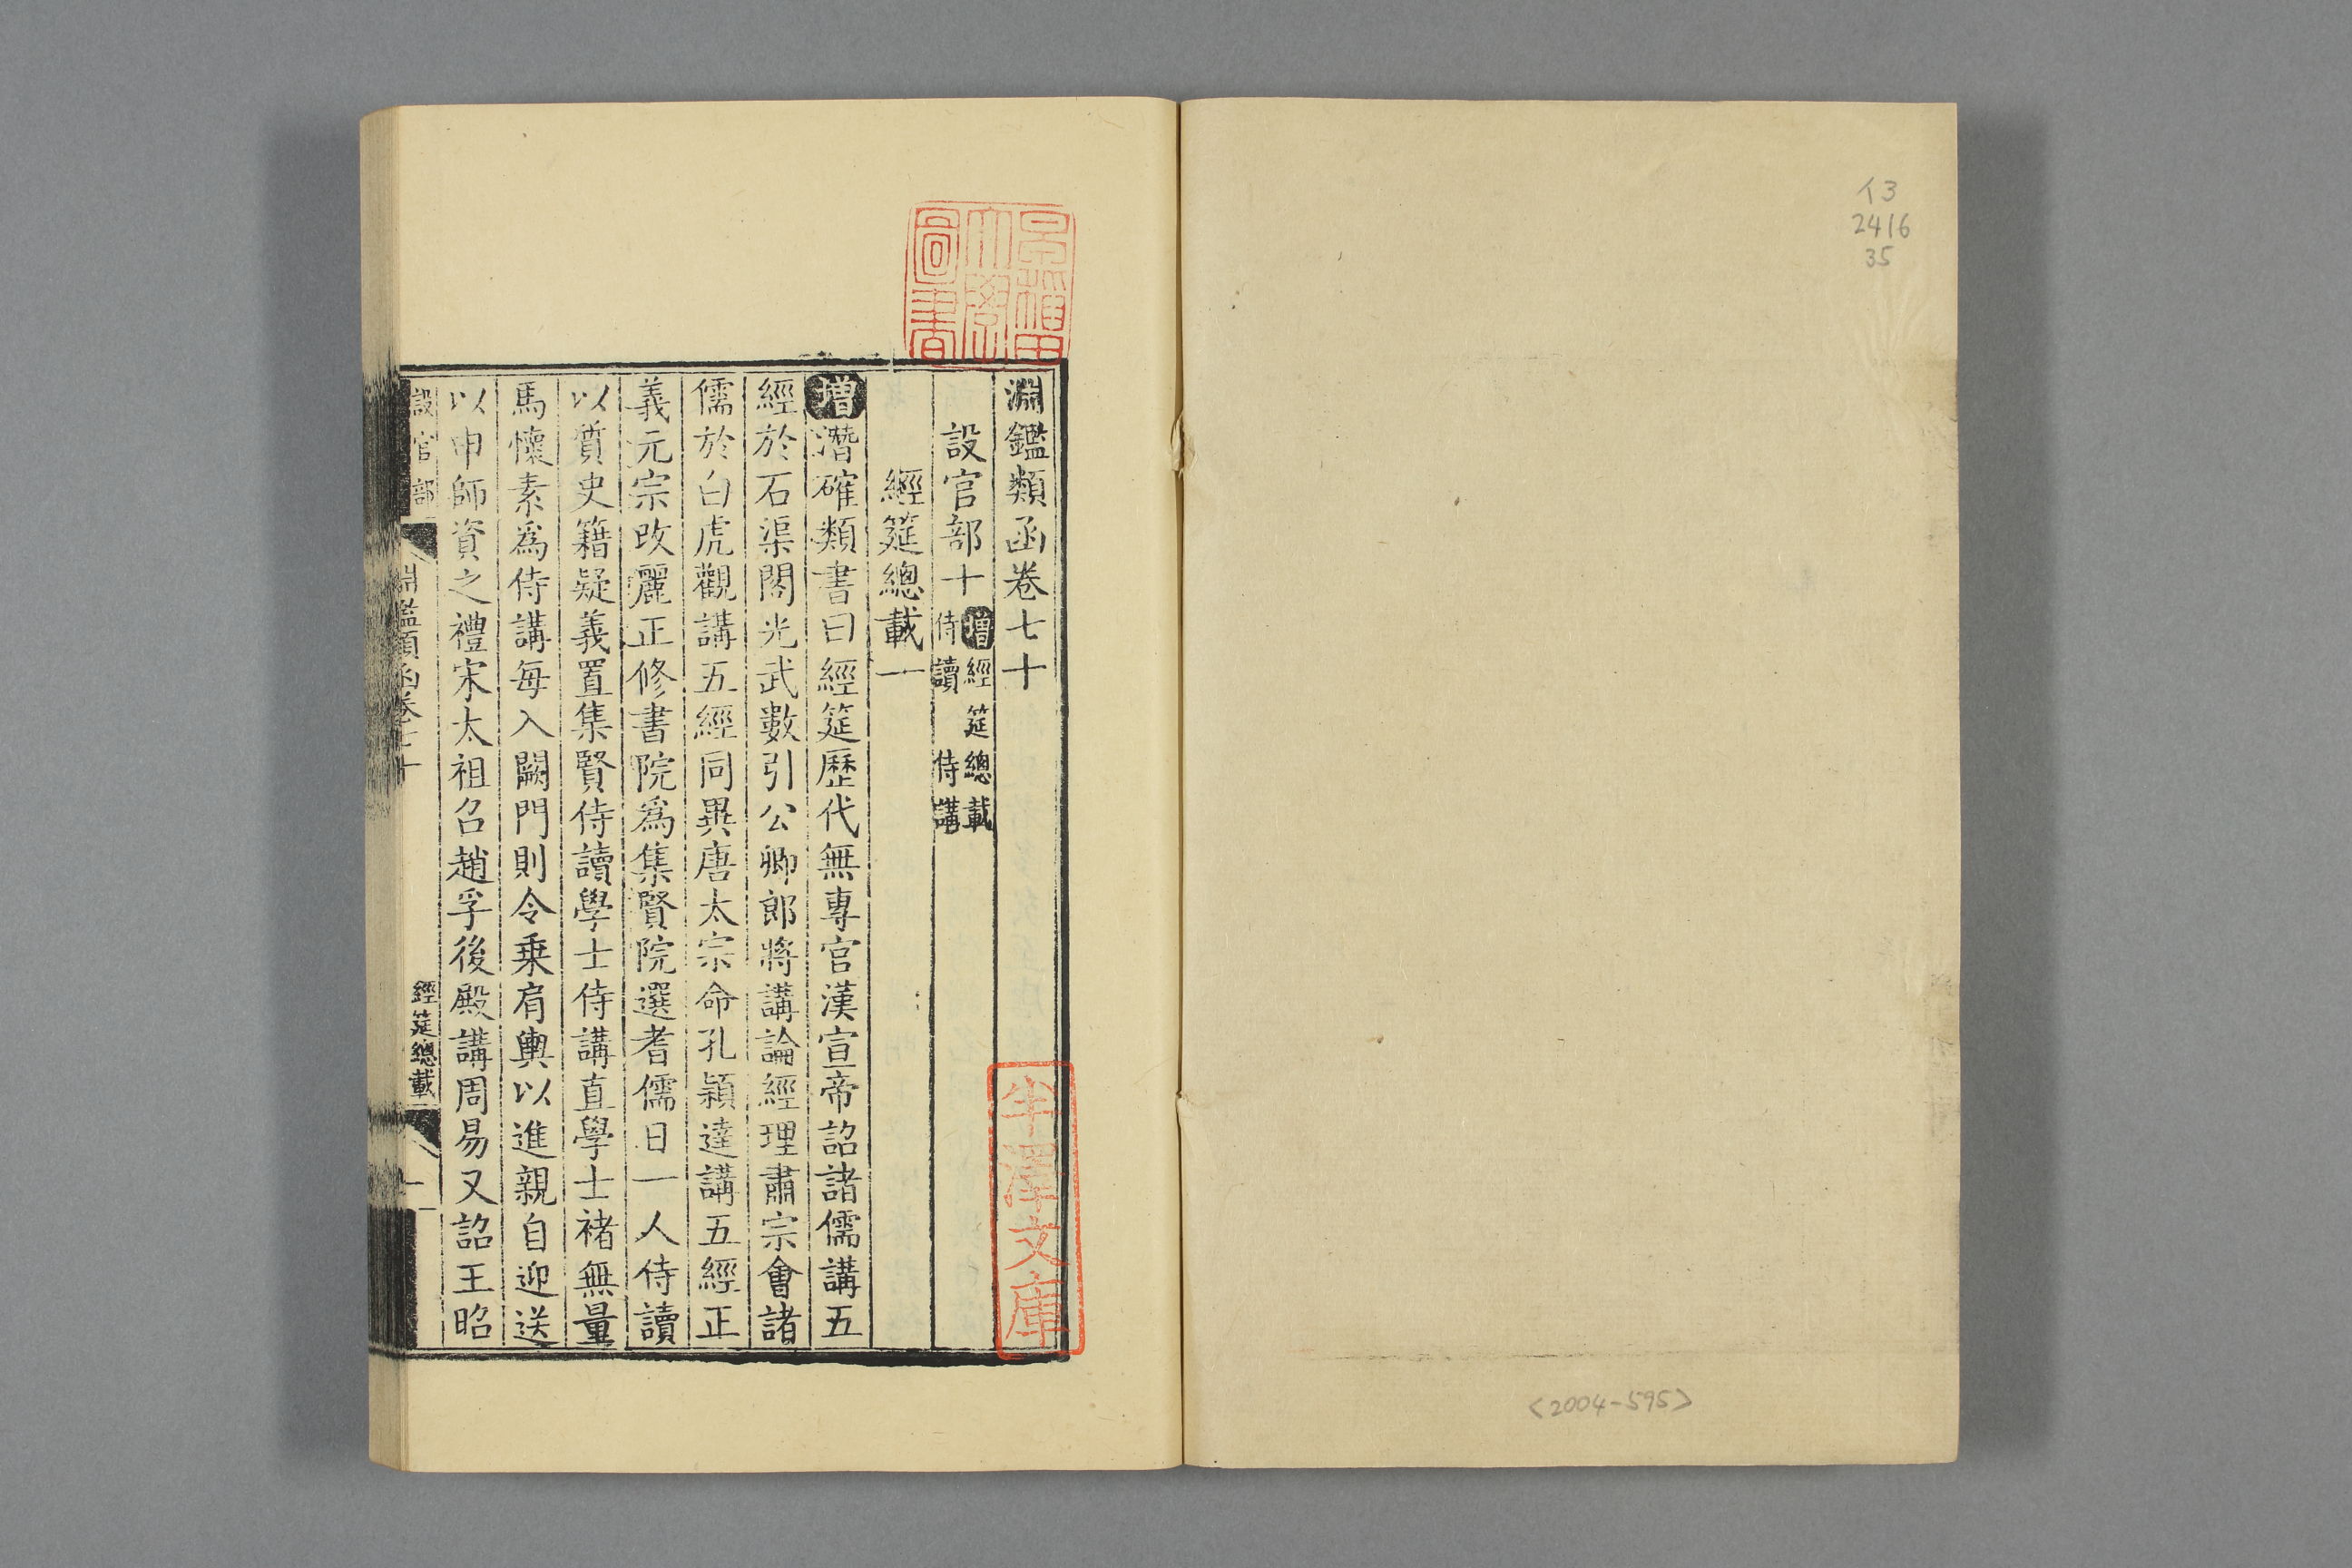 イ3
2416
35
<2004-595>
早稲田
大學
圖書
淵鑑類函卷七十
設官部十 增經筵總載
侍讀 侍講
經筵總載一
增潛確類書曰經筵歷代無專官漢宣帝詔諸儒講五
經於石渠閣光武數引公卿郎將講論經理肅宗會諸
儒於白虎觀講五經同異唐太宗命孔穎達講五經正
義元宗改麗正修書院爲集賢院選耆儒日一人侍讀
以質史籍疑義置集賢侍讀學士侍講直學士褚無量
馬懷素爲侍講每入閣門則令乗肩輿以進親自迎送
以申師資之禮宋太祖召趙孚後殿講周易又詔王昭
設官部
淵鑑類函卷七十
經筵總載
一
半澤文庫